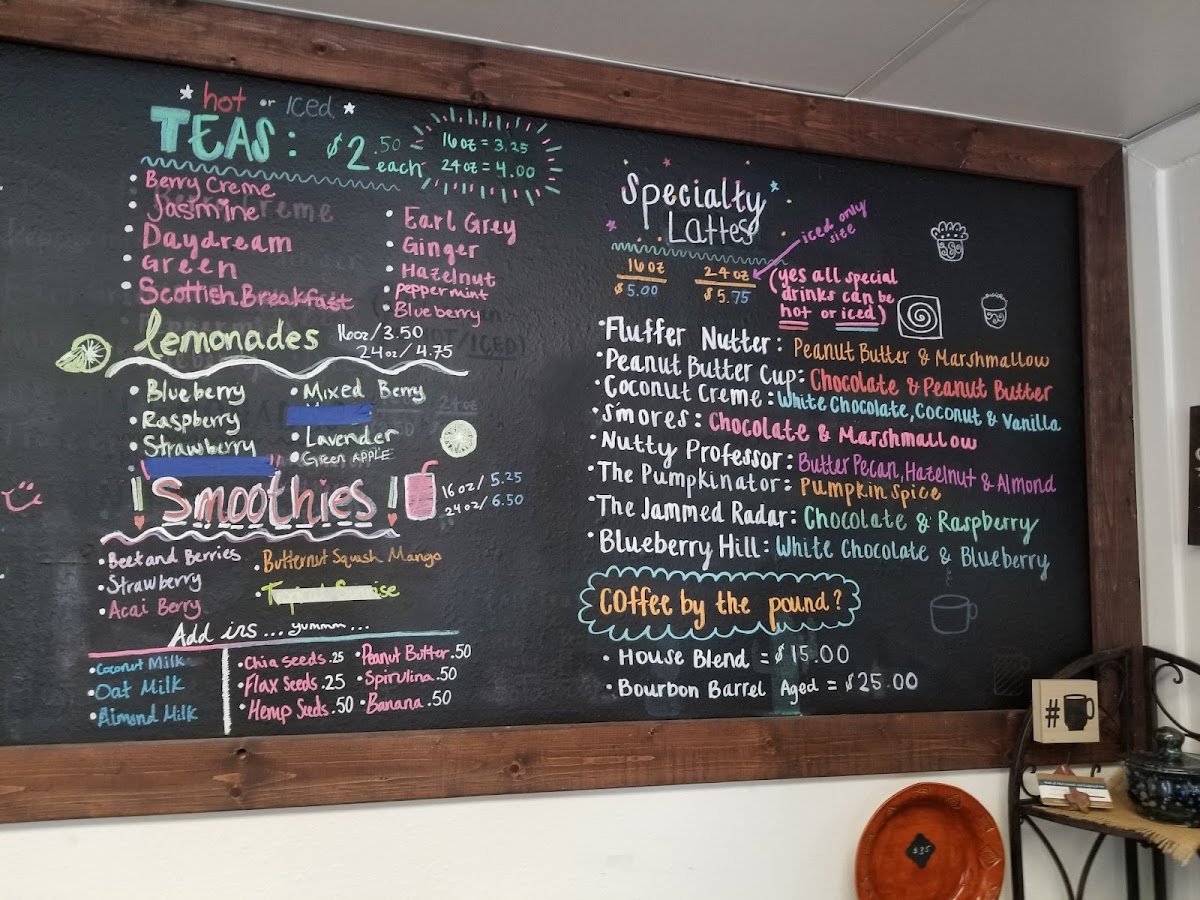 hot or iced
TEAS: $2.50 each
16oz = 3.25
24oz = 4.00
• Berry Creme
• Jasmine
• Daydream
• Green
• Scottish Breakfast
• Earl Grey
• Ginger
• Hazelnut
• Peppermint
• Blueberry
lemonades 16oz/3.50
24oz/4.75
• Blueberry
• Raspberry
• Strawberry
• Mixed Berry
• Lavender
• Green APPLE
Smoothies 16oz/5.25
24oz/6.50
• Beet and Berries
• Strawberry
• Acai Berry
• Butternut Squash Mango
Add ins... yummm...
• Coconut Milk
• Oat Milk
• Almond Milk
• Chia Seeds .25
• Flax Seeds .25
• Hemp Seeds .50
• Peanut Butter .50
• Spirulina .50
• Banana .50
Specialty
Lattes
iced only
size
16oz
$5.00
24oz
$5.75
(yes all special
drinks can be
hot or iced)
• Fluffer Nutter: Peanut Butter & Marshmallow
• Peanut Butter Cup: Chocolate & Peanut Butter
• Coconut Creme: White Chocolate, Coconut & Vanilla
• S'mores: Chocolate & Marshmallow
• Nutty Professor: Butter Pecan, Hazelnut & Almond
• The Pumpkinator: Pumpkin Spice
• The Jammed Radar: Chocolate & Raspberry
• Blueberry Hill: White Chocolate & Blueberry
Coffee by the pound?
• House Blend = $15.00
• Bourbon Barrel Aged = $25.00
#
$35